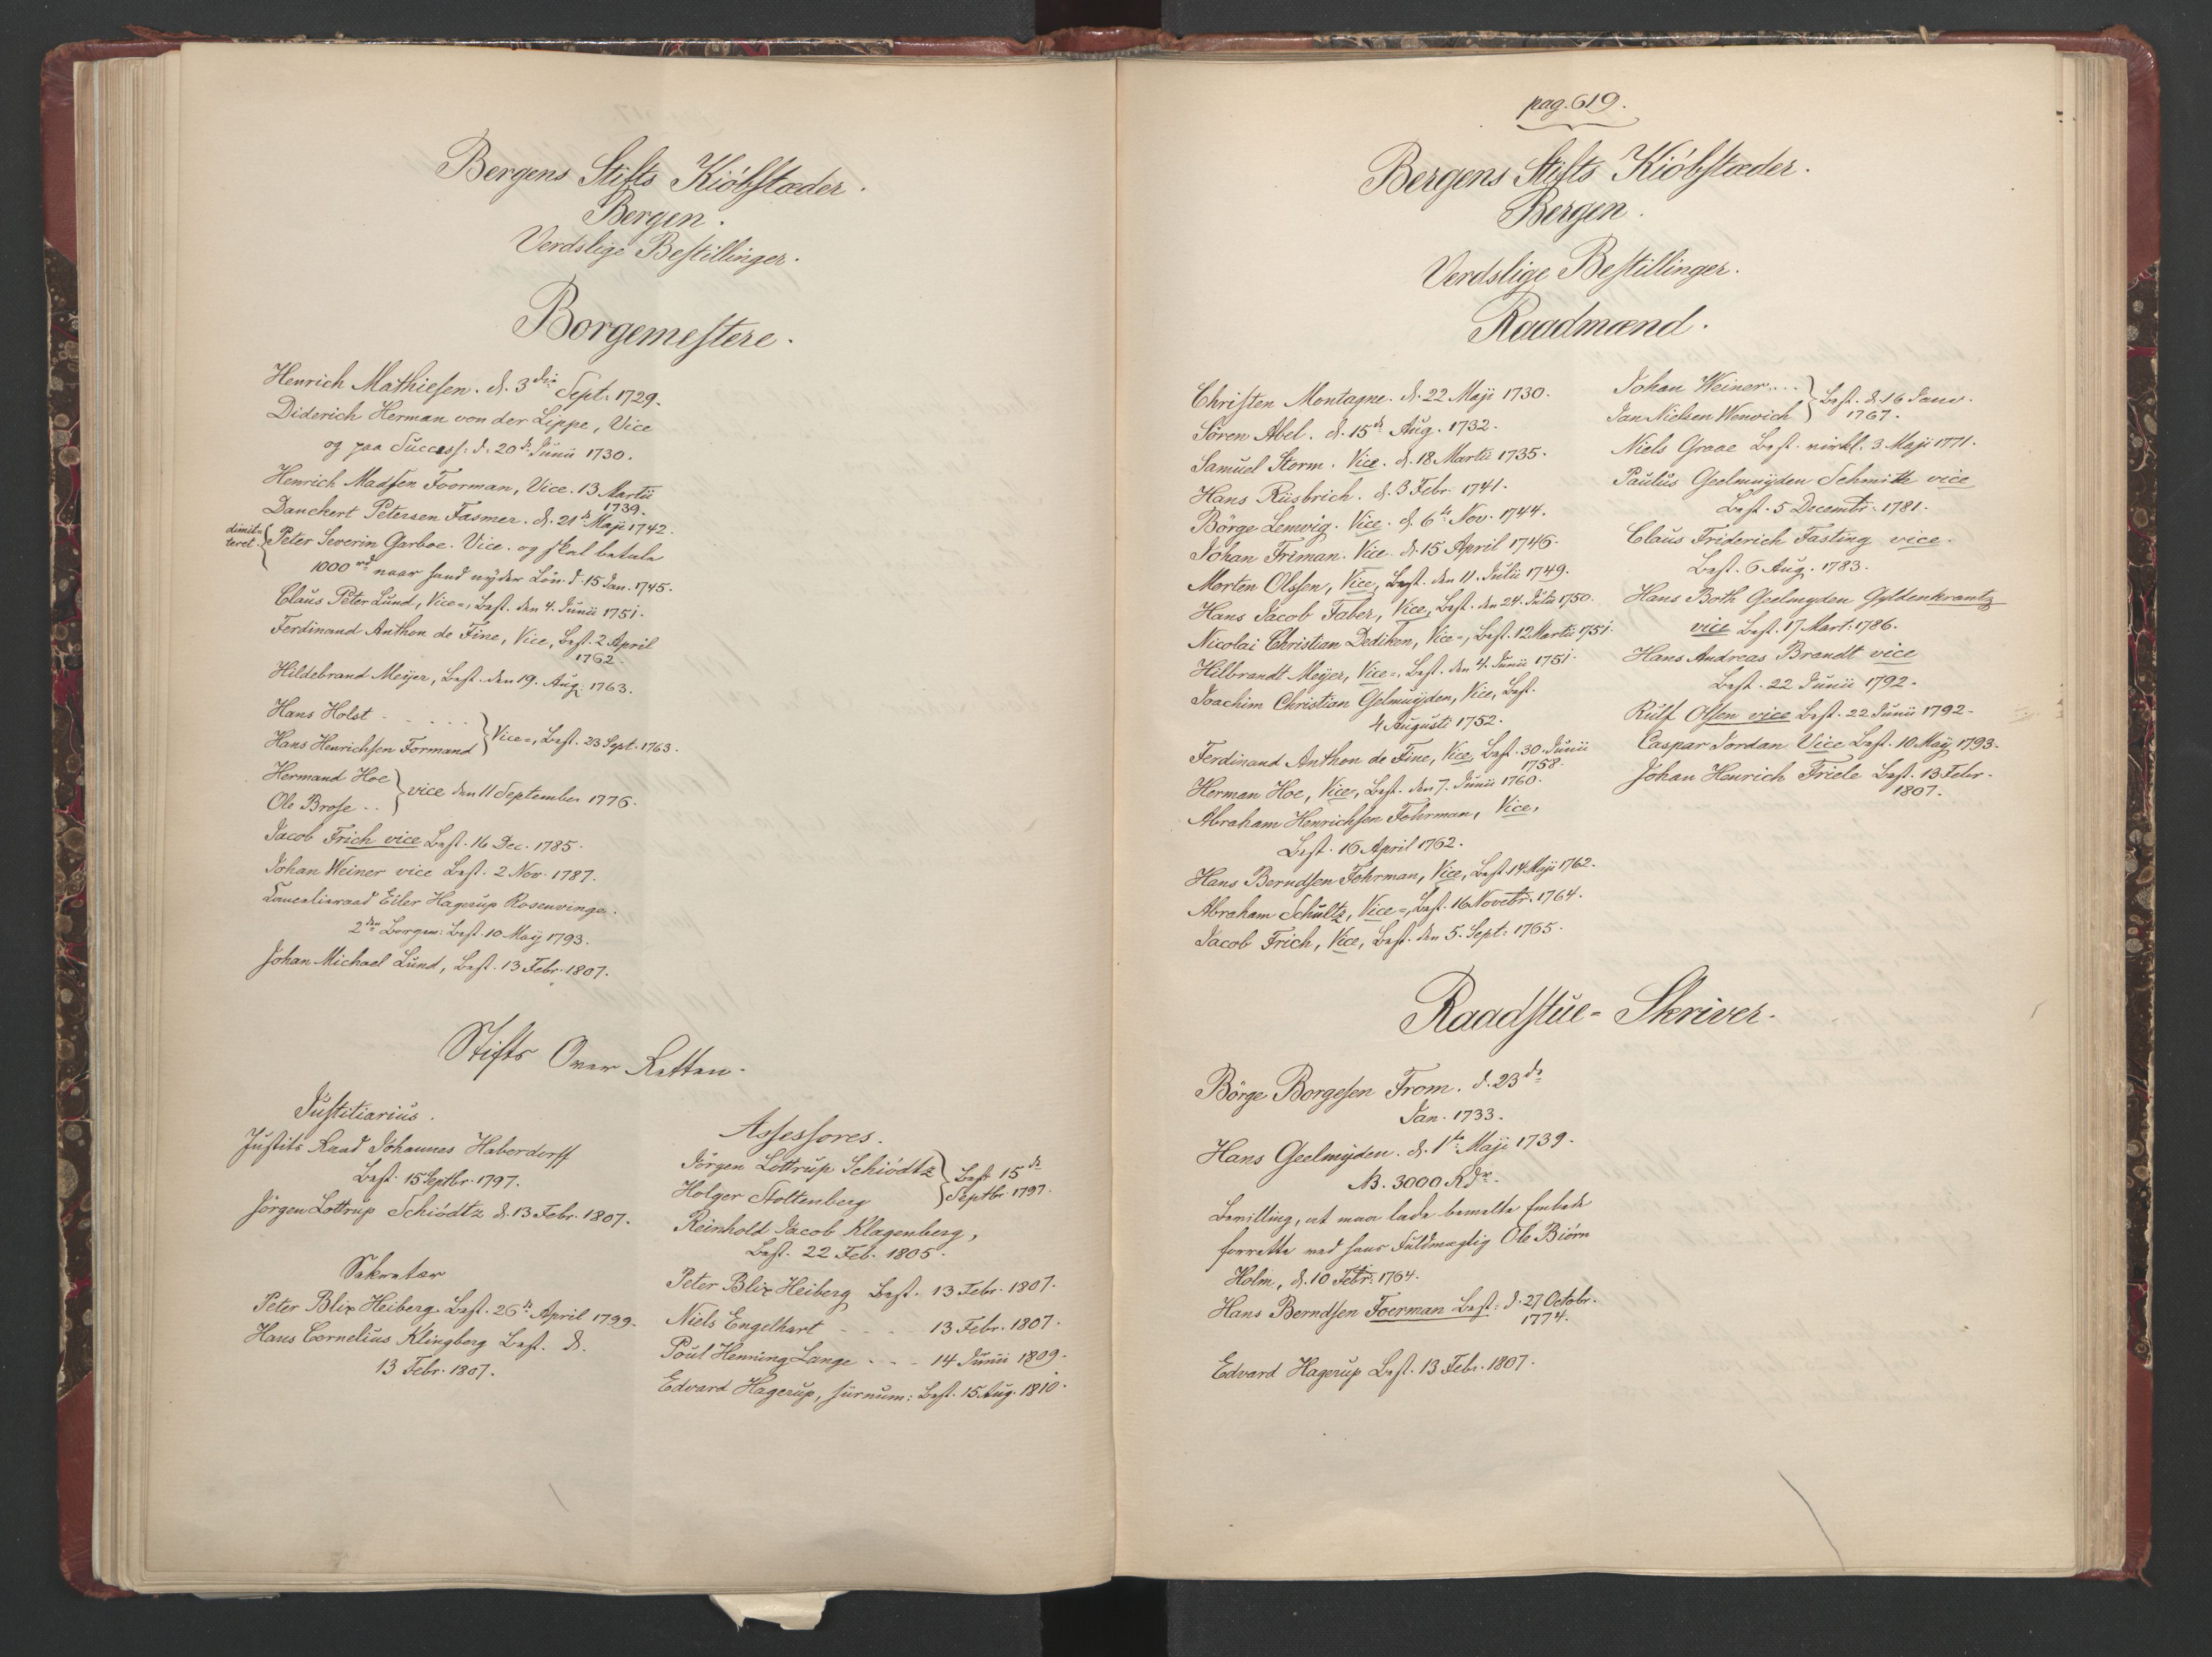 Bergens Stifts Kiöbstæder.
Bergen.
Verdslige Bestillinger.
Borgemestere.
Henrich Mathiesen. d. 3die Sept. 1729.
Diderich Herman von der Lippe, Vice
og paa Success: d. 20de Junii 1730.
Henrich Madsen Foorman, Vice. 13 Martii
1739.
Danckert Petersen Fasmer. d. 21de Maji 1742.
dimit=
teret.
Peter Severin Garboe. Vice. og skal betale
1000 rd naar hand nyder Lön. d. 15 Jan. 1745.
Claus Peter Lund, Vice=, Best. den 4. Junii 1751.
Ferdinand Anthon de Fine, Vice, Best. 2 April
1762.
Hildebrand Meyer, Best. den 19. Aug. 1763.
Hans Holst . . . . .
Hans Henrichsen Formand
Vice=, Best. 23 Sept. 1763.
Hermand Hoe
Ole Brose . .
vice den 11 September 1776.
Jacob Frich vice Best. 16 Dec. 1785.
Johan Weiner vice Best. 2 Nov. 1787.
Cancelieraad Eiler Hagerup Rosenvinge.
2den Borgem: Best. 10 Maÿ 1793.
Johan Michael Lund, Best. 13 Febr. 1807.
Stifts Over Retten.
Justitiarius.
Justits Raad Johannes Haberdorff
Best. 15 Septbr. 1797.
Jörgen Lottrup Schiödtz d. 13 Febr. 1807.
Sekretær
Peter Blix Heiberg. Best. 26de April 1799.
Hans Cornelius Klingberg Best. d.
13 Febr. 1807.
Assessores.
Jörgen Lottrup Schiödtz
Holger Stoltenberg
Best 15de
Septbr. 1797.
Reinhold Jacob Klagenberg,
Best. 22 Feb. 1805.
Peter Blix Heiberg Best. 13 Febr. 1807.
Niels Engelhart - - - 13 Febr. 1807.
Poul Henning Lange - - - 14 Junii 1809.
Edvard Hagerup, surnum: Best. 15 Aug. 1810.
pag. 619.
Bergens Stifts Kiöbstæder.
Bergen.
Verdslige Bestillinger.
Raadmænd.
Christen Montagne. d. 22 Maji 1730.
Sören Abel. d. 15de Aug. 1732.
Samuel Storm. Vice. d. 18 Martii 1735.
Hans Riisbrich. d. 3 Febr. 1741.
Börge Lemvig. Vice. d. 6te Nov. 1744.
Johan Friman. Vice. d. 15 April 1746.
Morten Olssen, Vice, Best. den 11. Julii 1749.
Hans Jacob Faber, Vice, Best. den 24. Julii 1750.
Nicolai Christian Dediken, Vice=, Best. 12 Martii 1751.
Hilbrandt Meyer, Vice=, Best. den 4. Junii 1751.
Joachim Christian Gelmuyden, Vice, Best.
4 Augusti 1752.
Ferdinand Anthon de Fine, Vice, Best. 30. Junii
1758.
Herman Hoe, Vice=, Best. den 7. Junii 1760.
Abraham Henrichsen Fohrman, Vice,
Best. 16 April 1762.
Hans Berndsen Fohrman, Vice, Best. 14 Maji 1762.
Abraham Schultz, Vice=, Best. 16 Novebr. 1764.
Jacob Frich, Vice, Best. den 5. Sept: 1765.
Johan Weiner. . . .
Jan Nielsen Wenvich
Best. d. 16 Janv.
1767.
Niels Graae Best. virkl. 3 Maji 1771.
Paulus Geelmuyden Schmitt vice
Best. 5 Decembr. 1781.
Claus Friderich Fasting vice.
Best. 6 Aug. 1783.
Hans Both Geelmyden Gyldenkrantz
vice Best. 17 Mart. 1786.
Hans Andreas Brandt vice
Best. 22 Junii 1792.
Rulf Olsen vice Best. 22 Junii 1792.
Caspar Jordan Vice Best. 10 Maÿ 1793.
Johan Henrich Friele Best. 13 Febr.
1807.
Raadstue=Skriver.
Börge Borgesen From. d. 23de
Jan. 1733.
Hans Geelmÿden. d. 1te Maji 1739.
NB. 3000 Rdr.
Bevilling, at maa lade bemelte Embede
forrette ved hans Fuldmægtig Ole Biörn
Holm, d. 10 Febr: 1764.
Hans Berndsen Foerman Best: d. 27 Octobr.
1774.
Edvard Hagerup Best. 13 Febr. 1807.